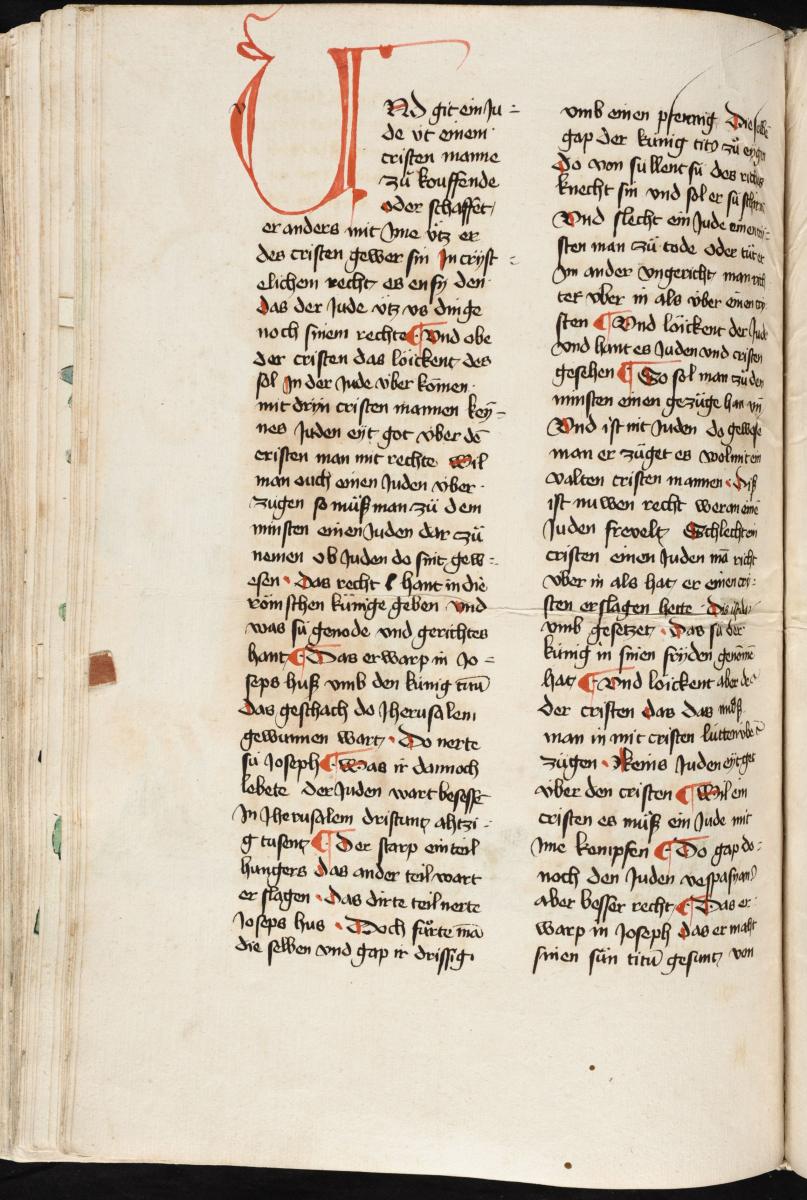 UNd git ein Ju-
de üt einem
cristen manne
zü kouffende
oder schaffet,
er anders mit Jme ütz er
des cristen gewer sin Jn cryst-
elichem recht, es ensy den
das der Jude ütz vs dinge
noch sinem rechte Und obe
der cristen das löickent, des
sol Jn der Jude über kōmen
mit dryn cristen mannen key-
nes Juden eyt got über dē
cristen man mit rechte Wil
man ouch einen Juden über
zügen so müß man zü dem
minsten einen Juden dar zü
nemen ob Juden do sint gew-
esen Das recht hant in die
römschen künige geben vnd
was sü genode vnd gerichtes
hant Das erwarp in Jo-
seps huß vmb den künig titū
Das geschach do Jherusalem
gewunnen wart, Do nerte
sü Joseph Was ir dannoch
lebete der Juden wart beseße
Jn Jherusalem dristunt, ahtzi-
g tusent, Der starp ein teil
hungers das ander teil wart
erslagen Das dirte teil nerte
Joseps hus Doch fürte mā
die selben vnd gap ir drissig
vmb einen pfennig Die selbē
gap der künig tito zü eygen
Do von süllent sü des riches
knecht sin vnd sol er sü schirm
Und slecht ein Jude einen cri-
sten man zü tode oder tüt er
Jm ander vngericht, man rich
tet über in als über einen cry
sten Und löickent der Jude
vnd hant es Juden vnd cristen
gesehen So sol man zü den
minsten einen gezüge han vn̄
Und ist nit Juden do gewese
man er züget es wol mit ein
valten cristen mannen Diß
ist nuwen recht wer an eine
Juden frevelt, Schlecht ein
cristen einen Juden mā richt
über in als hat, er einen cri-
sten erslagen hette Dis ist dar
vmb gesetzet Das sü der
künig in sinen fryden genōme
hat, Und löickent aber des
der cristen das das müß
man in mit cristen lütten übe
zügen keins Juden eyt get
über den cristen Wil ein
cristen es müß ein Jude mit
Jme kempfen Do gap do-
noch den Juden vespasyan9
aber besser recht, Das er-
warp in Joseph das er maht
sinen sün titū gesunt, von